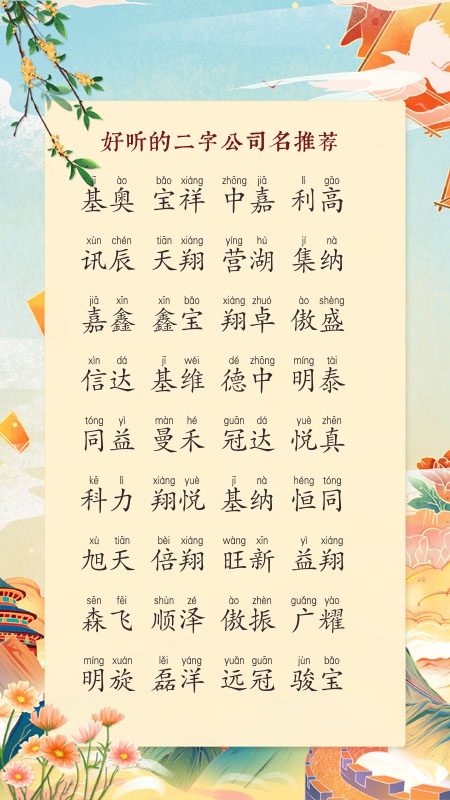 好听的二字公司名推荐
jī ào bǎo xiáng zhōng jiā lì gāo
基奥 宝祥 中嘉 利高
xùn chén tiān xiáng yíng hú jí nà
讯辰 天翔 营湖 集纳
jiā xīn xīn bǎo xiáng zhuó ào shèng
嘉鑫 鑫宝 翔卓 傲盛
xìn dá jī wéi dé zhōng míng tài
信达 基维 德中 明泰
tóng yì màn hé guān dá yuè zhēn
同益 曼禾 冠达 悦真
kē lì xiáng yuè jī nà héng tóng
科力 翔悦 基纳 恒同
xù tiān bèi xiáng wàng xīn yì xiáng
旭天 倍翔 旺新 益翔
sēn fēi shùn zé ào zhèn guǎng yào
森飞 顺泽 傲振 广耀
míng xuán lěi yáng yuǎn guān jùn bǎo
明旋 磊洋 远冠 骏宝